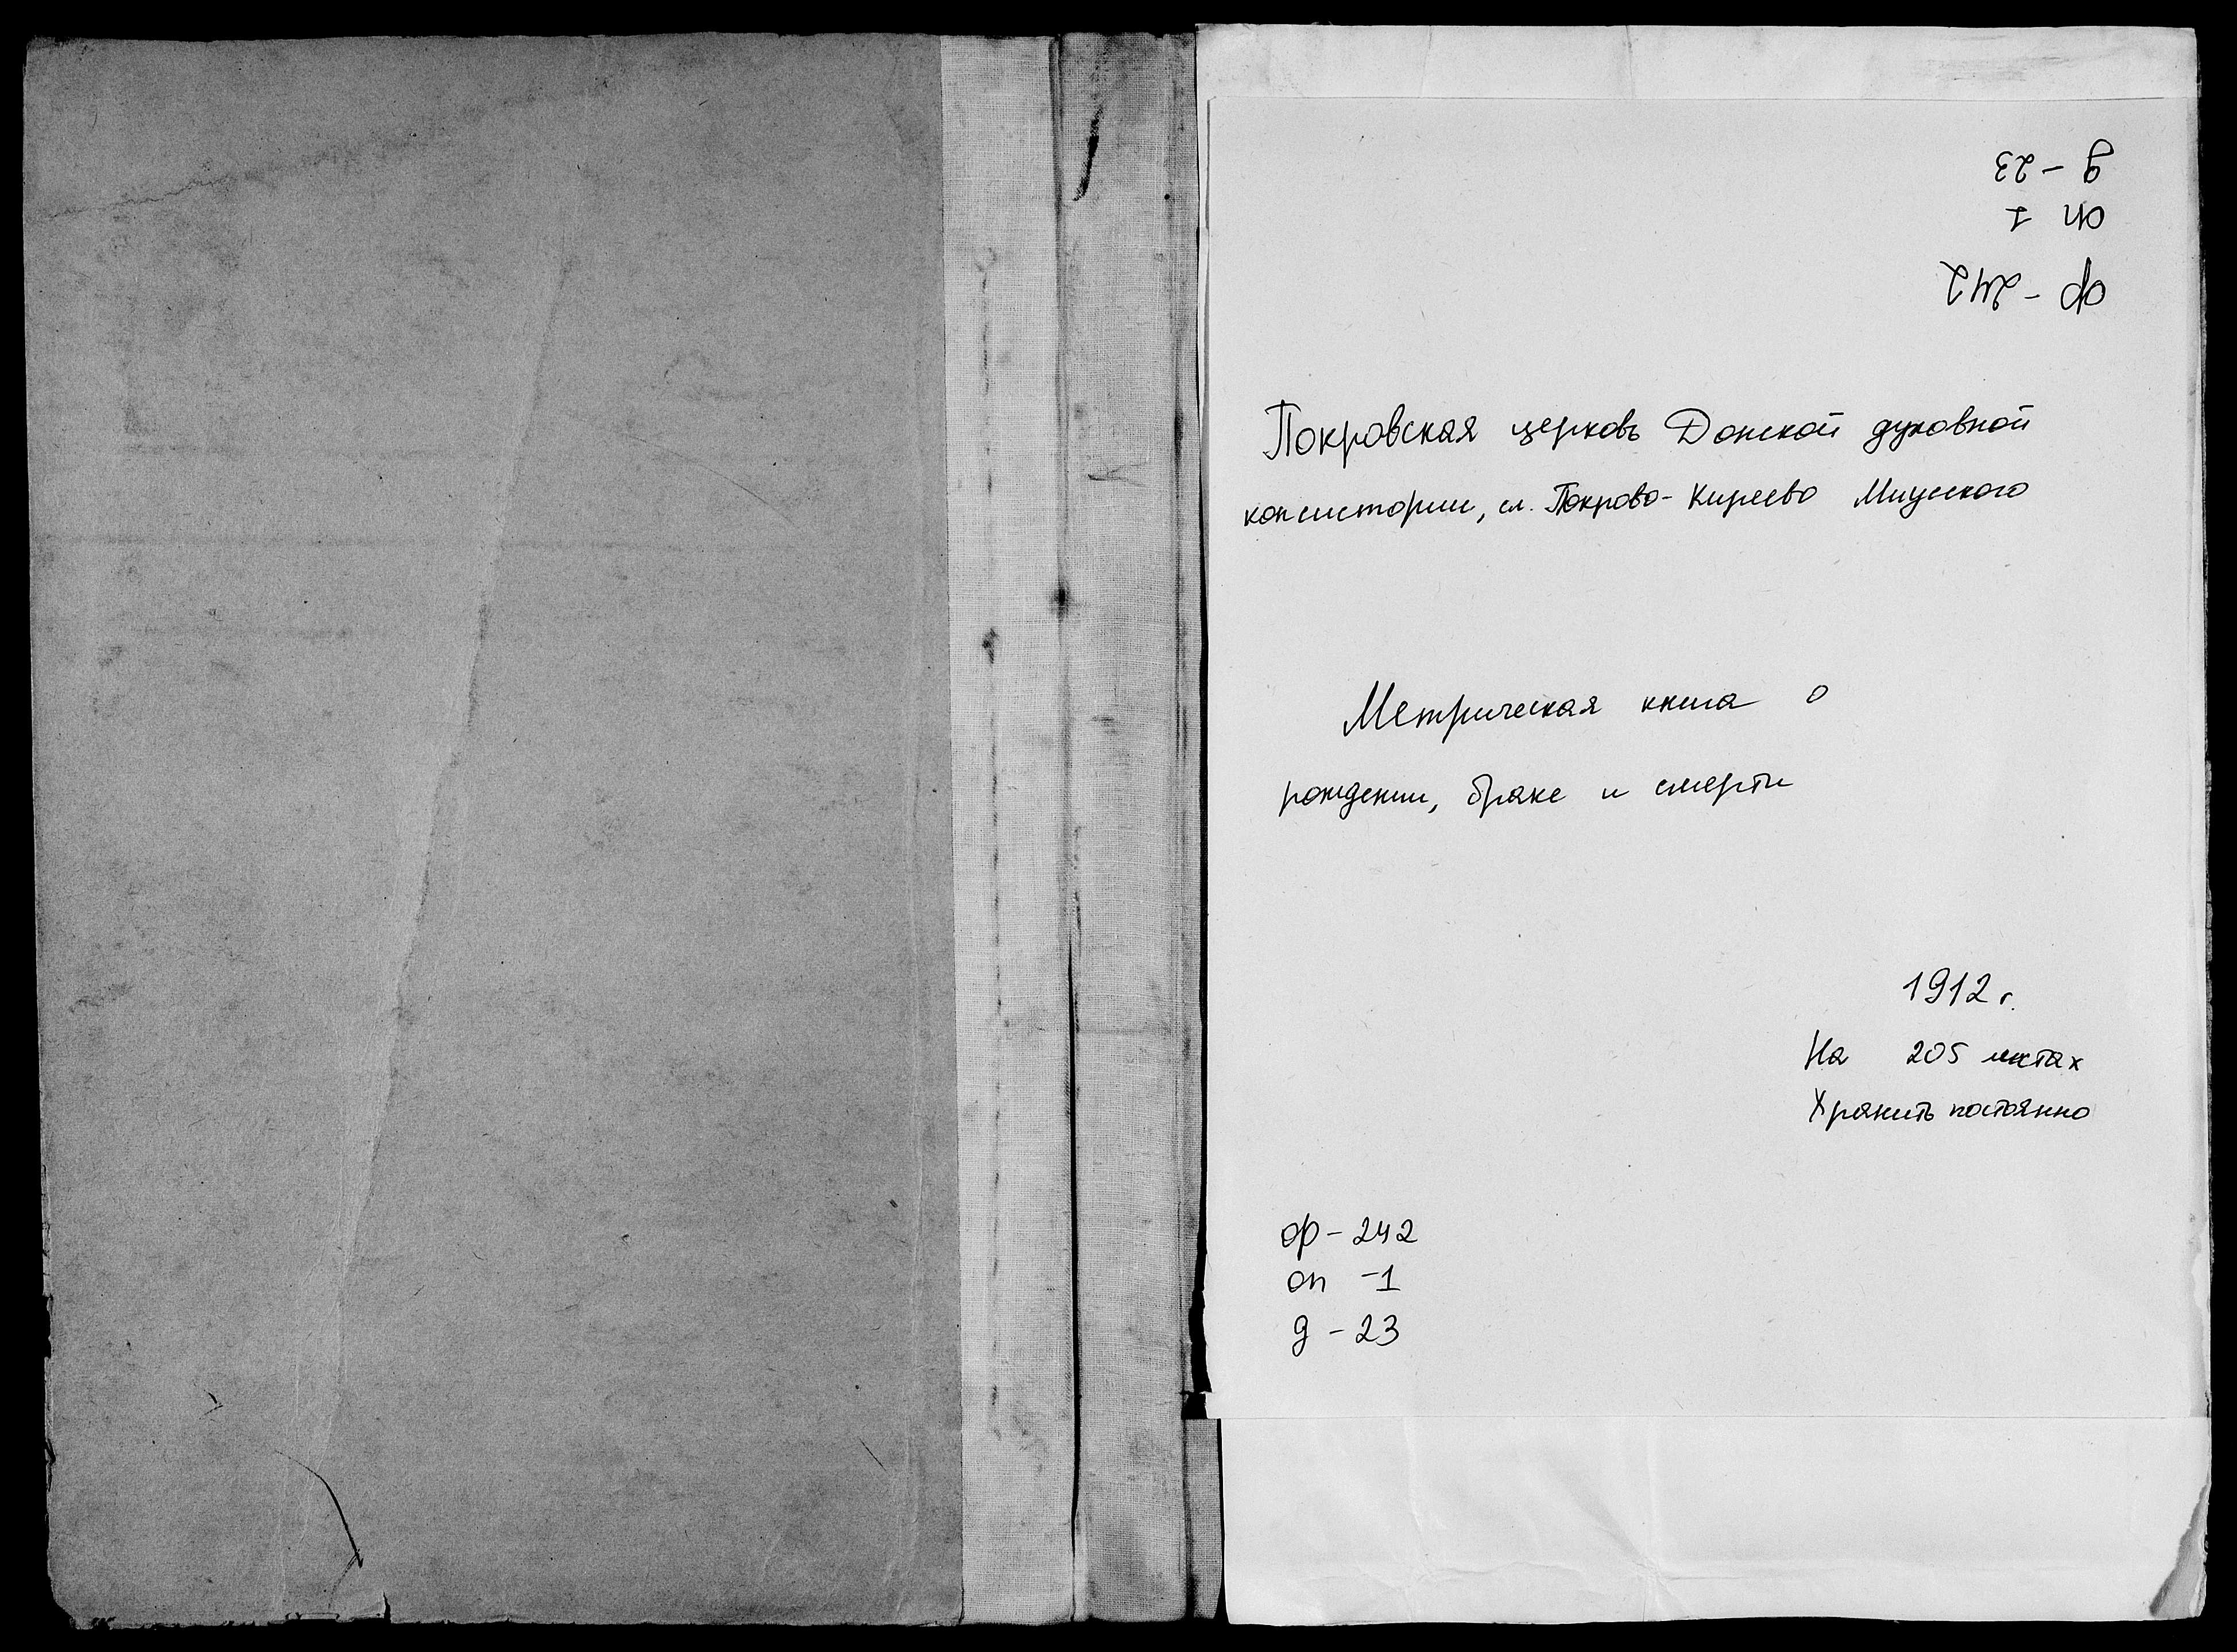 ф - 242
оп 1
д - 23
Покровская церковь Донской духовной
консистории, сл. Покрово-Киреево Миусского
Метрическая книга о
рождении, браке и смерти
1912 г.
На 205 листах
Хранить постоянно
ф - 242
оп - 1
д - 23